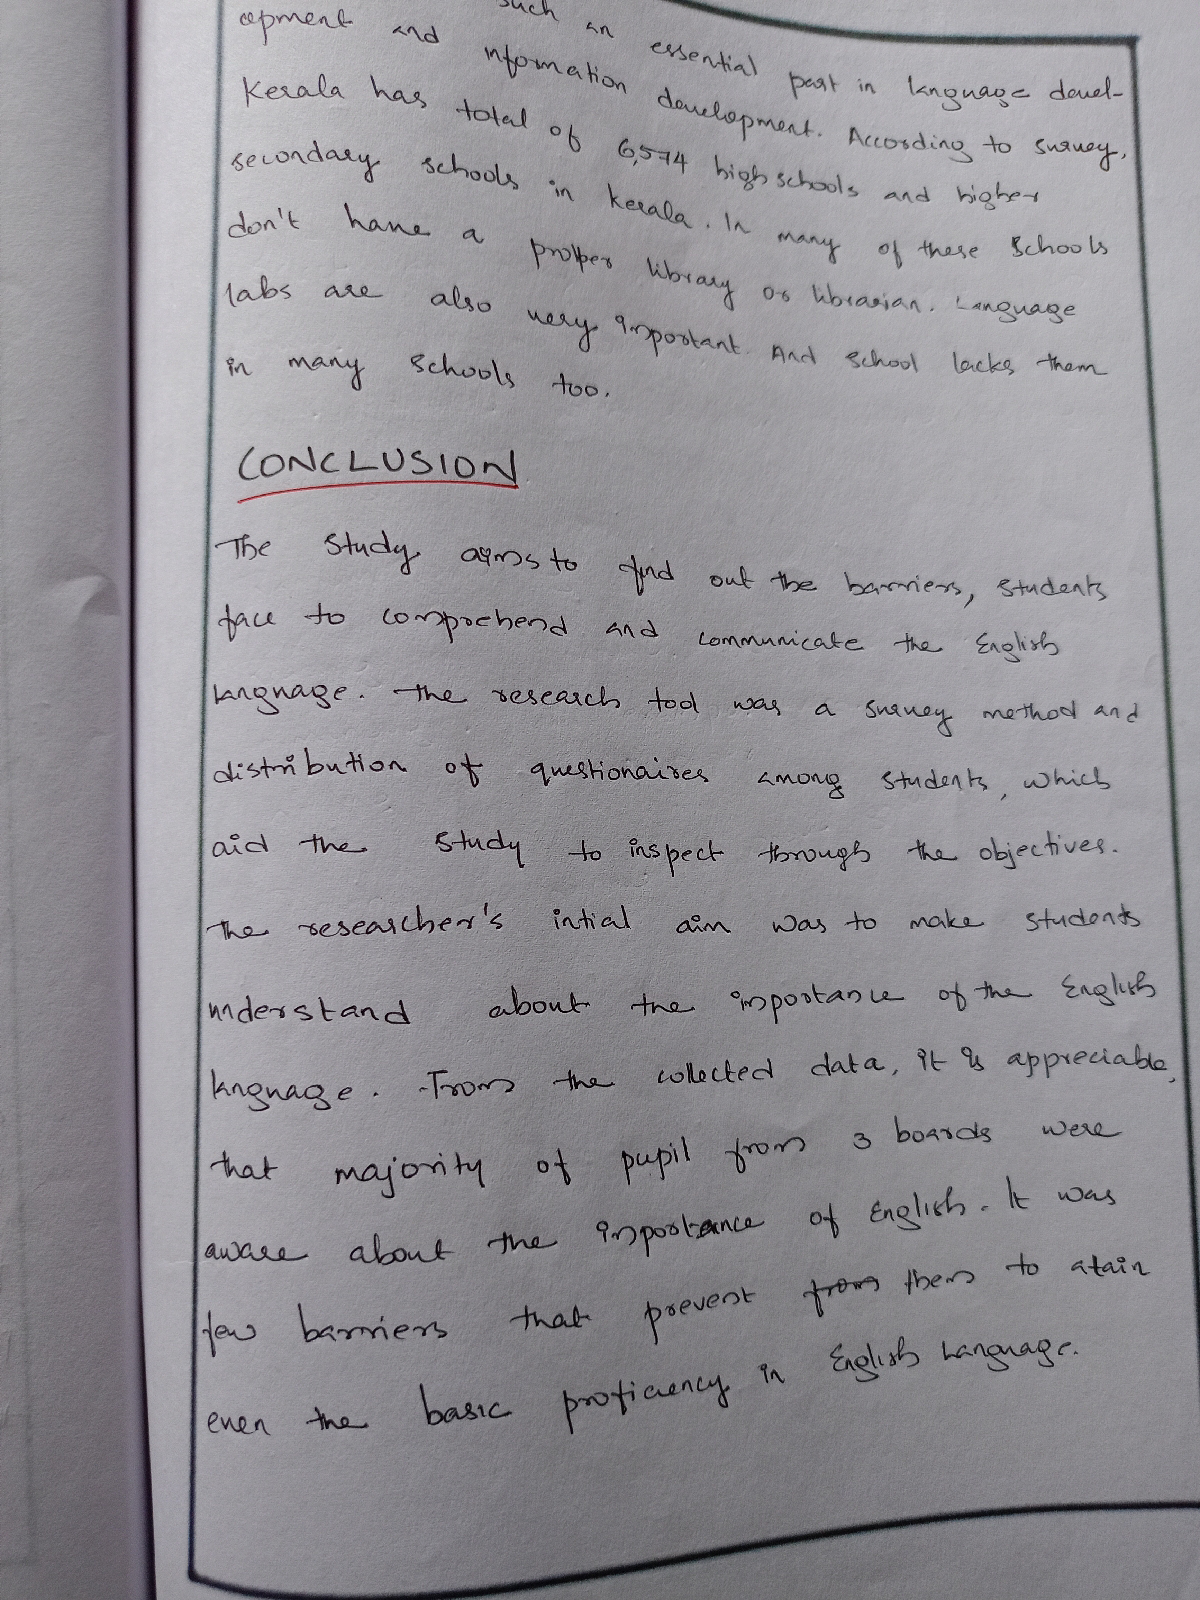 such an essential part in language devel-
opment and information development. According to survey,
Kerala has total of 6,574 high schools and higher
secondary schools in kerala. In many of these schools
don't have a proper library or librarian. Language
labs are also very important. And school lacks them
in many schools too.
CONCLUSION
The study aims to find out the barriers, students
face to comprehend and communicate the English
language. The research tool was a survey method and
distribution of questionaires among students, which
aid the study to inspect through the objectives.
The researcher's intial aim was to make students
understand about the importance of the English
language. From the collected data, it is appreciable,
that majority of pupil from 3 boards were
aware about the importance of English. It was
few barriers that prevent from them to atain
even the basic proficiency in English Language.